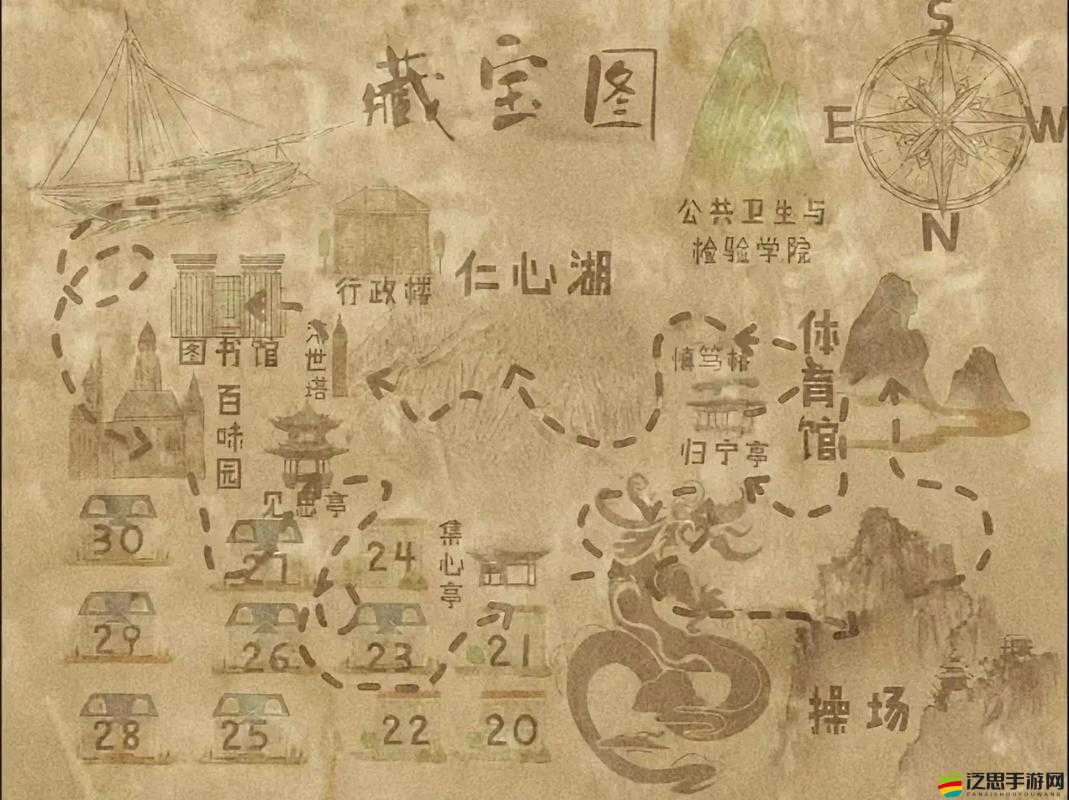 藏宝图
S
E
W
N
公共卫生与
检验学院
行政楼
仁心湖
图书馆
济世塔
慎笃林
体育馆
百味园
归宁亭
见思亭
集心亭
30
27
24
29
26
23
21
28
25
22
20
操场
泛思手游网
FANSISHOUYOUWANG